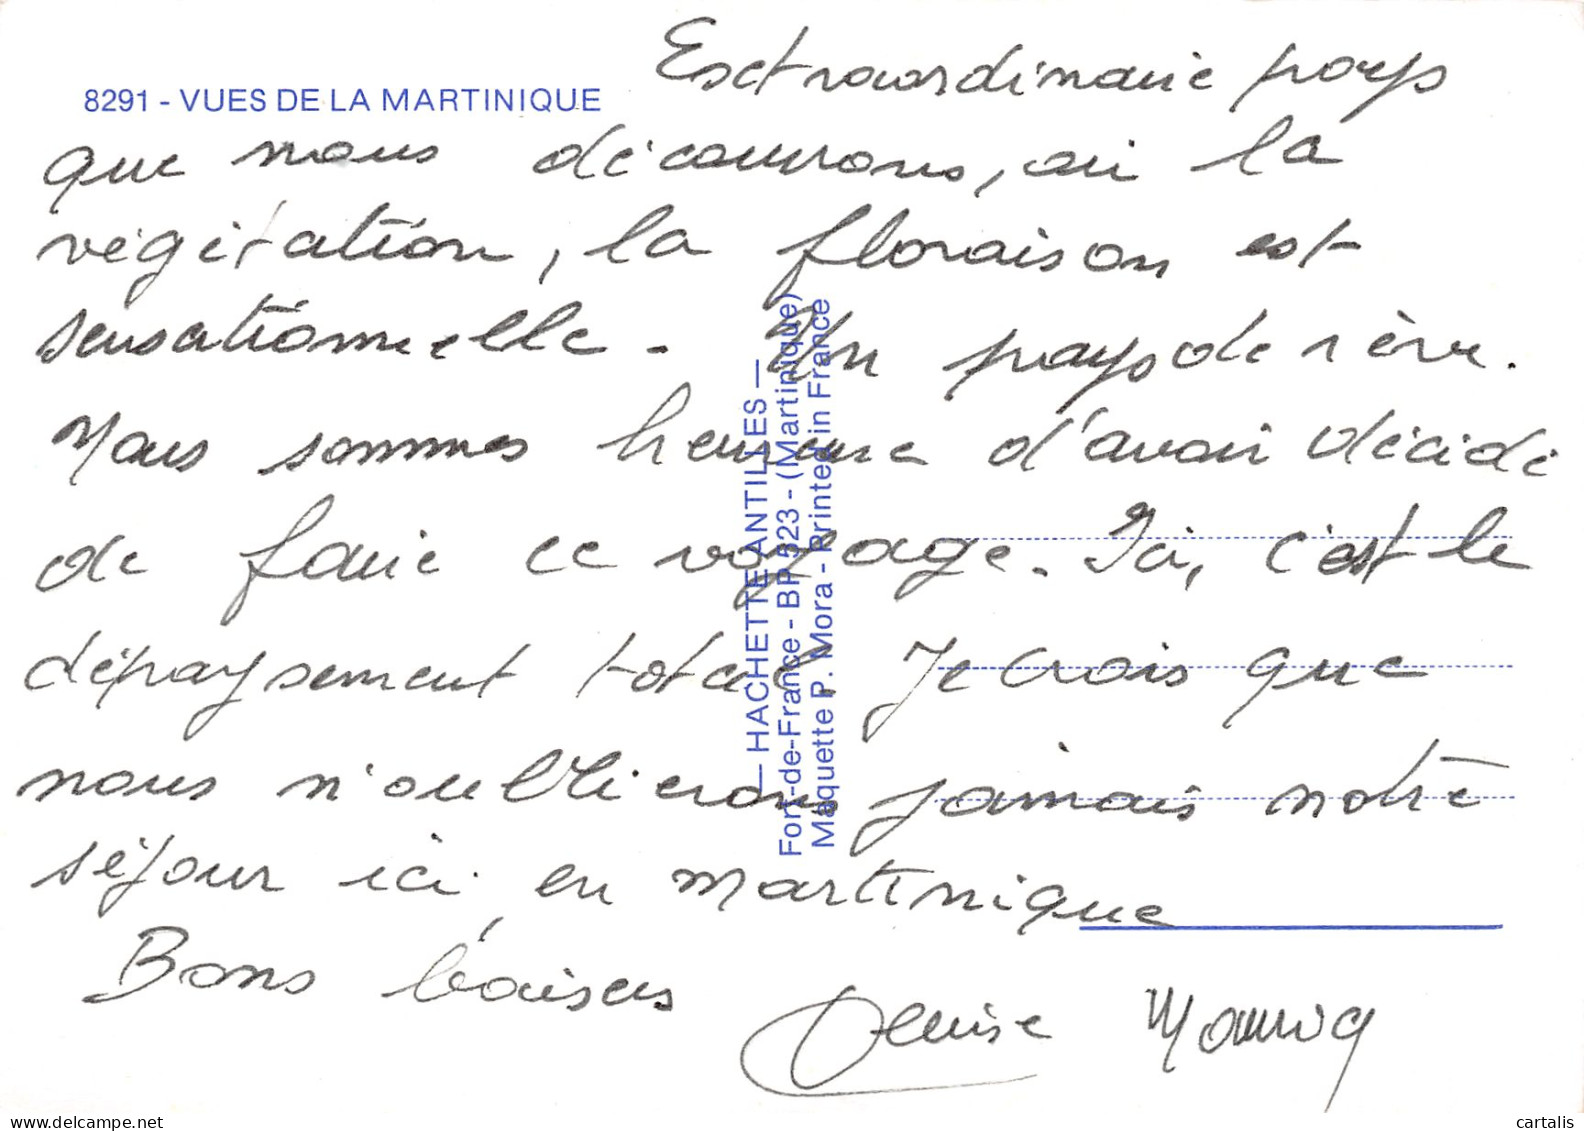 Esctraordinaire pays
8291 - VUES DE LA MARTINIQUE
que nous découvrons, où la
végétation, la floraison est
sensationnelle. Un pays de rêve.
Nous sommes heureuse d'avoir décidé
de faire ce voyage. Ici, c'est le
dépaysement total. Je crois que
nous n'oublierons jamais notre
séjour ici, en Martinique
Bons baisers
Denise
— HACHETTE ANTILLES —
Fort-de-France - BP 523 - (Martinique)
Maquette P. Mora - Printed in France
cartalis